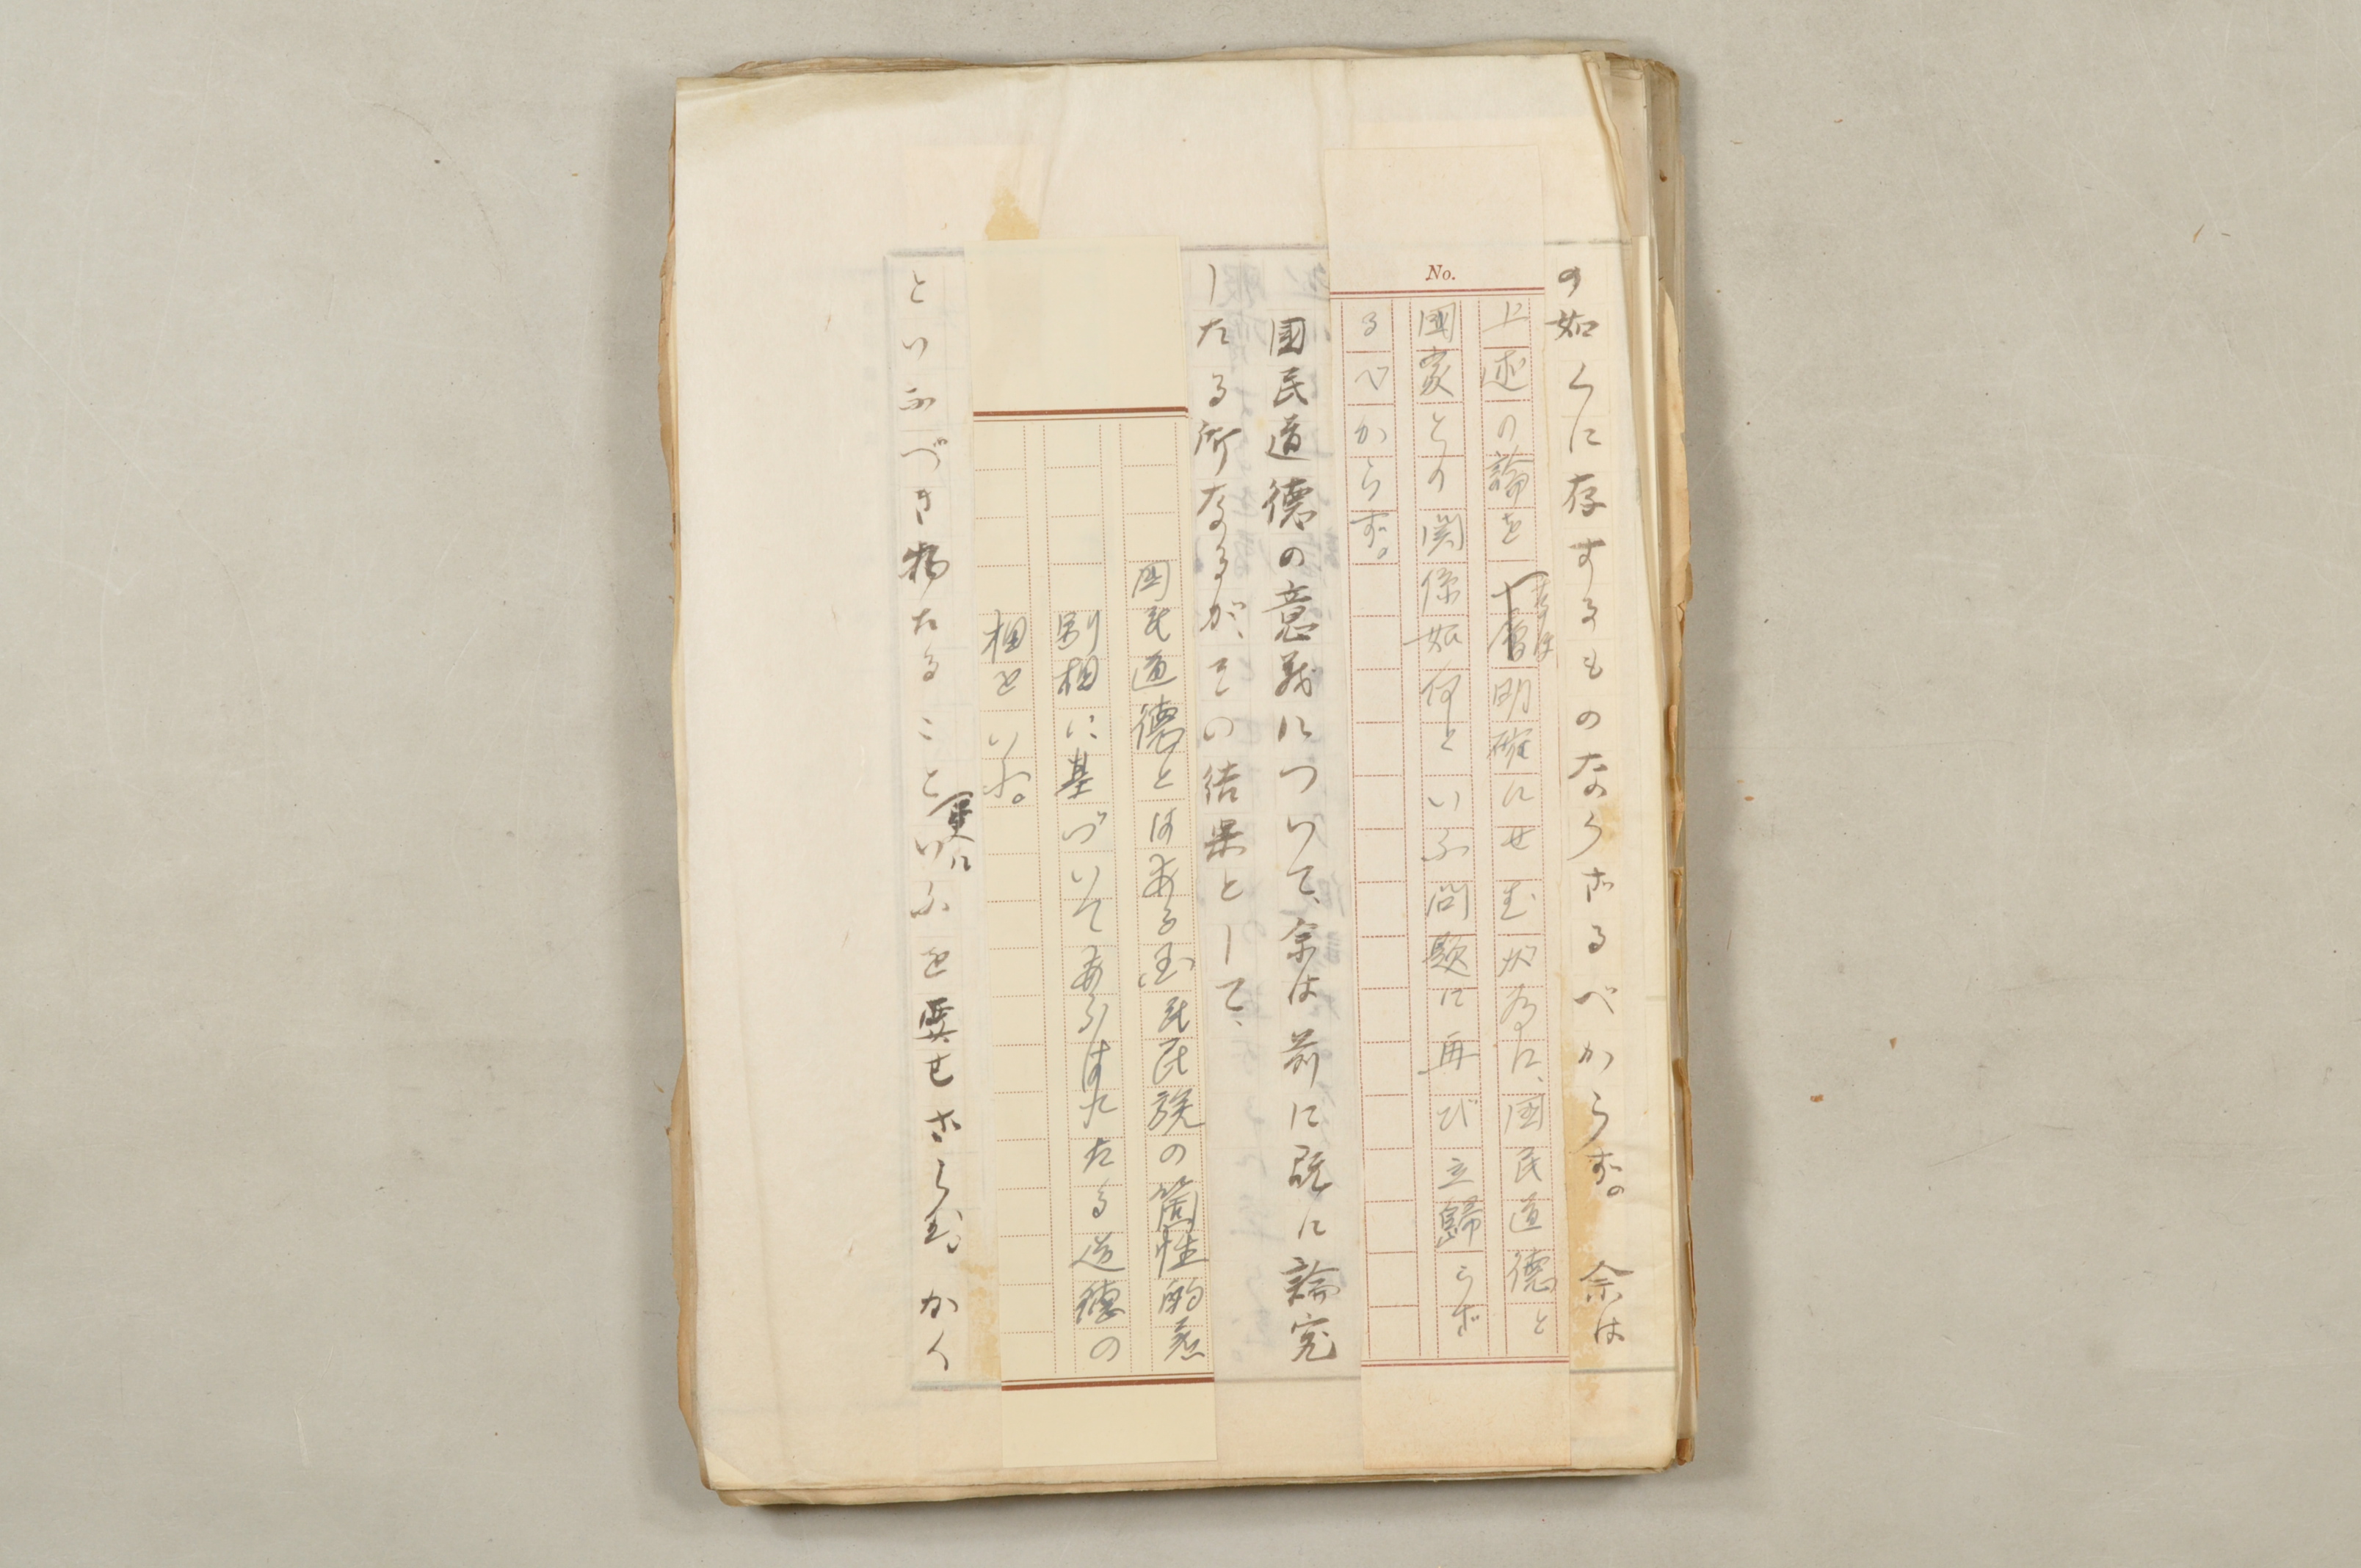 の如くに存するものならざるべからず。余は
No.
上述の論を一層明確にせむが為に、国民道徳と
国家との関係如何といふ問題に再び立歸らざ
るべからず。
國民道徳の意義について、余は前に既に論究
したる所なるが、その結果として、
国民道徳とはある国民民族の箇性的意
別相に基づいてあらはれたる道徳の
相をいふ。
といふべき物たること
更に
いふを要せざらむ。かく